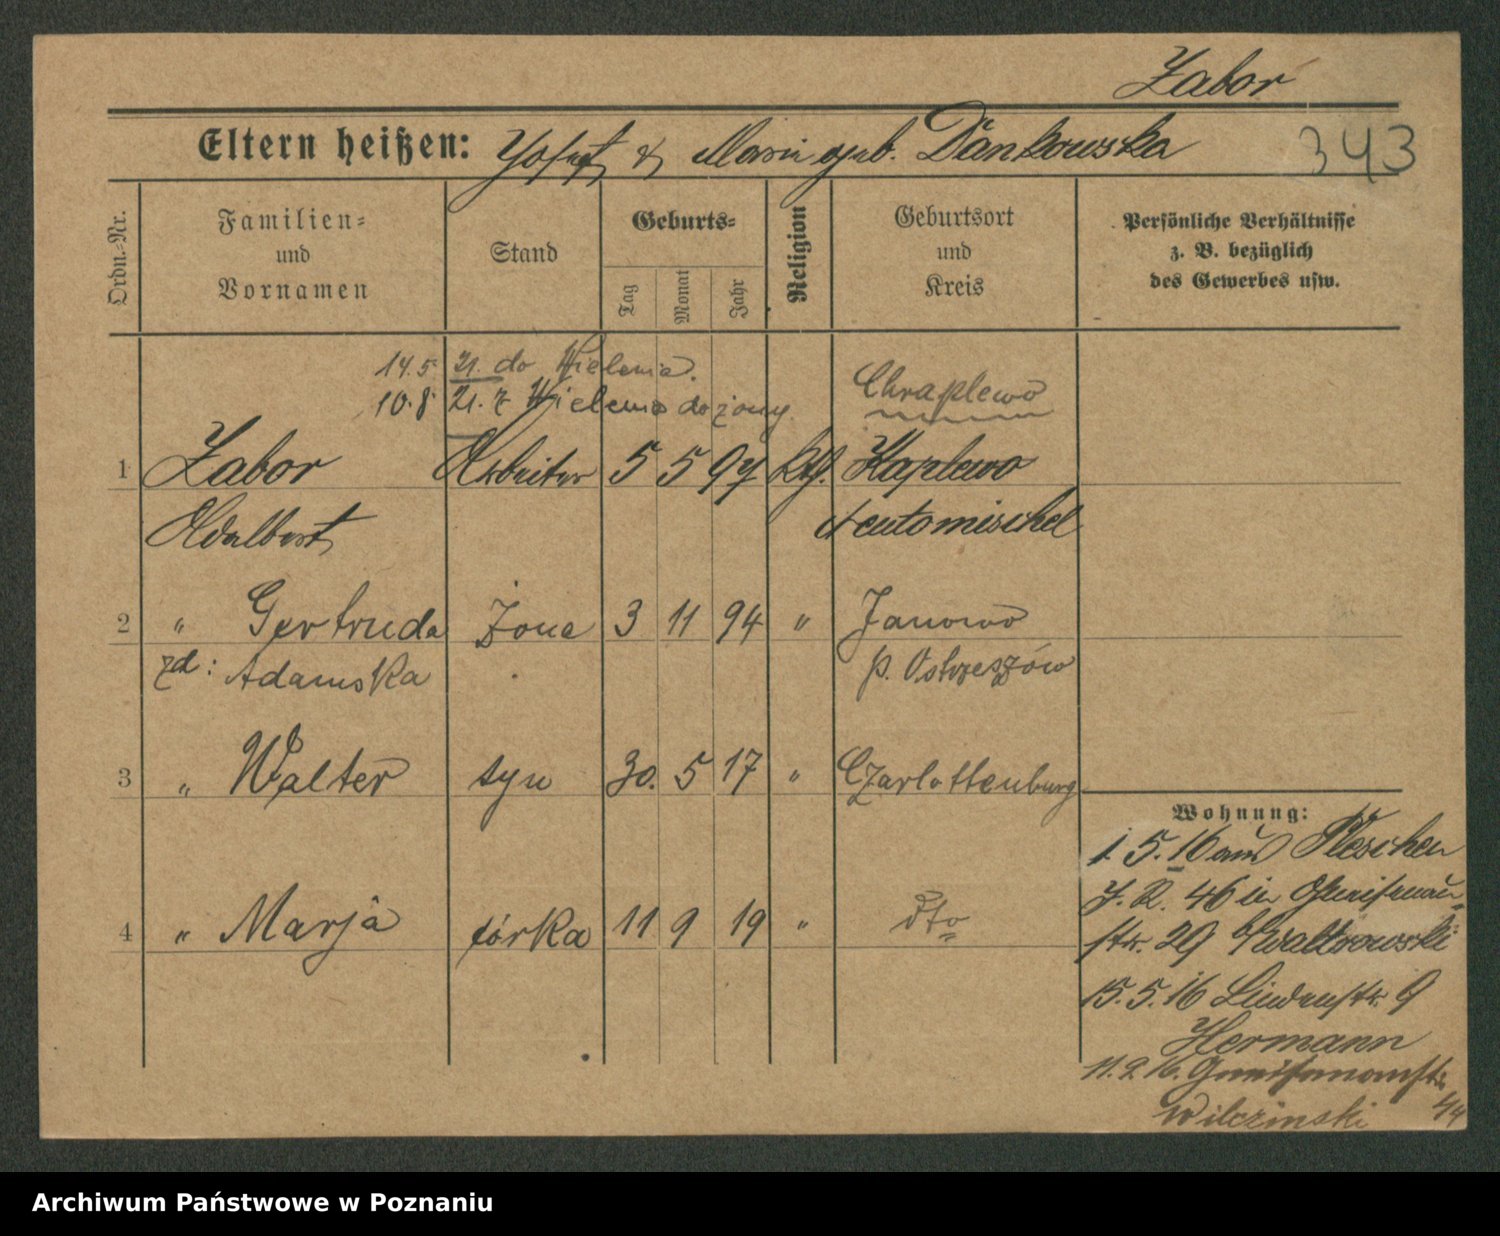 Zabor
Eltern heißen: Josef & Marie geb. Dankowska 343
Ordn.-Nr.
Familien- und Vornamen
Stand
Geburts-
Tag
Monat
Jahr
Religion
Geburtsort und Kreis
Persönliche Verhältnisse z. B. bezüglich des Gewerbes usw.
14.5. 21. do Wielenia.
10.8. 21. z Wielenia do żony.
Chraplewo
1 Zabor Arbeiter 5 5 97 kth. Kaplewo
Adalbert Neutomischel
2 " Gertruda żona 3 11 94 " Janowo
zd: Adamska p. Ostrzeszów
3 " Walter syn 30. 5 17 " Czarlottenburg
4 " Marja córka 11 9 19 " dto
Wohnung:
1. 5. 16 aus Pleschen
J. R. 46 in Gneisenau-
str. 29 b/
15. 5. 16 Lindenstr. 9
Hermann
11. 9. 16. Gneisenaustr.
Wilczinski 44
Archiwum Państwowe w Poznaniu